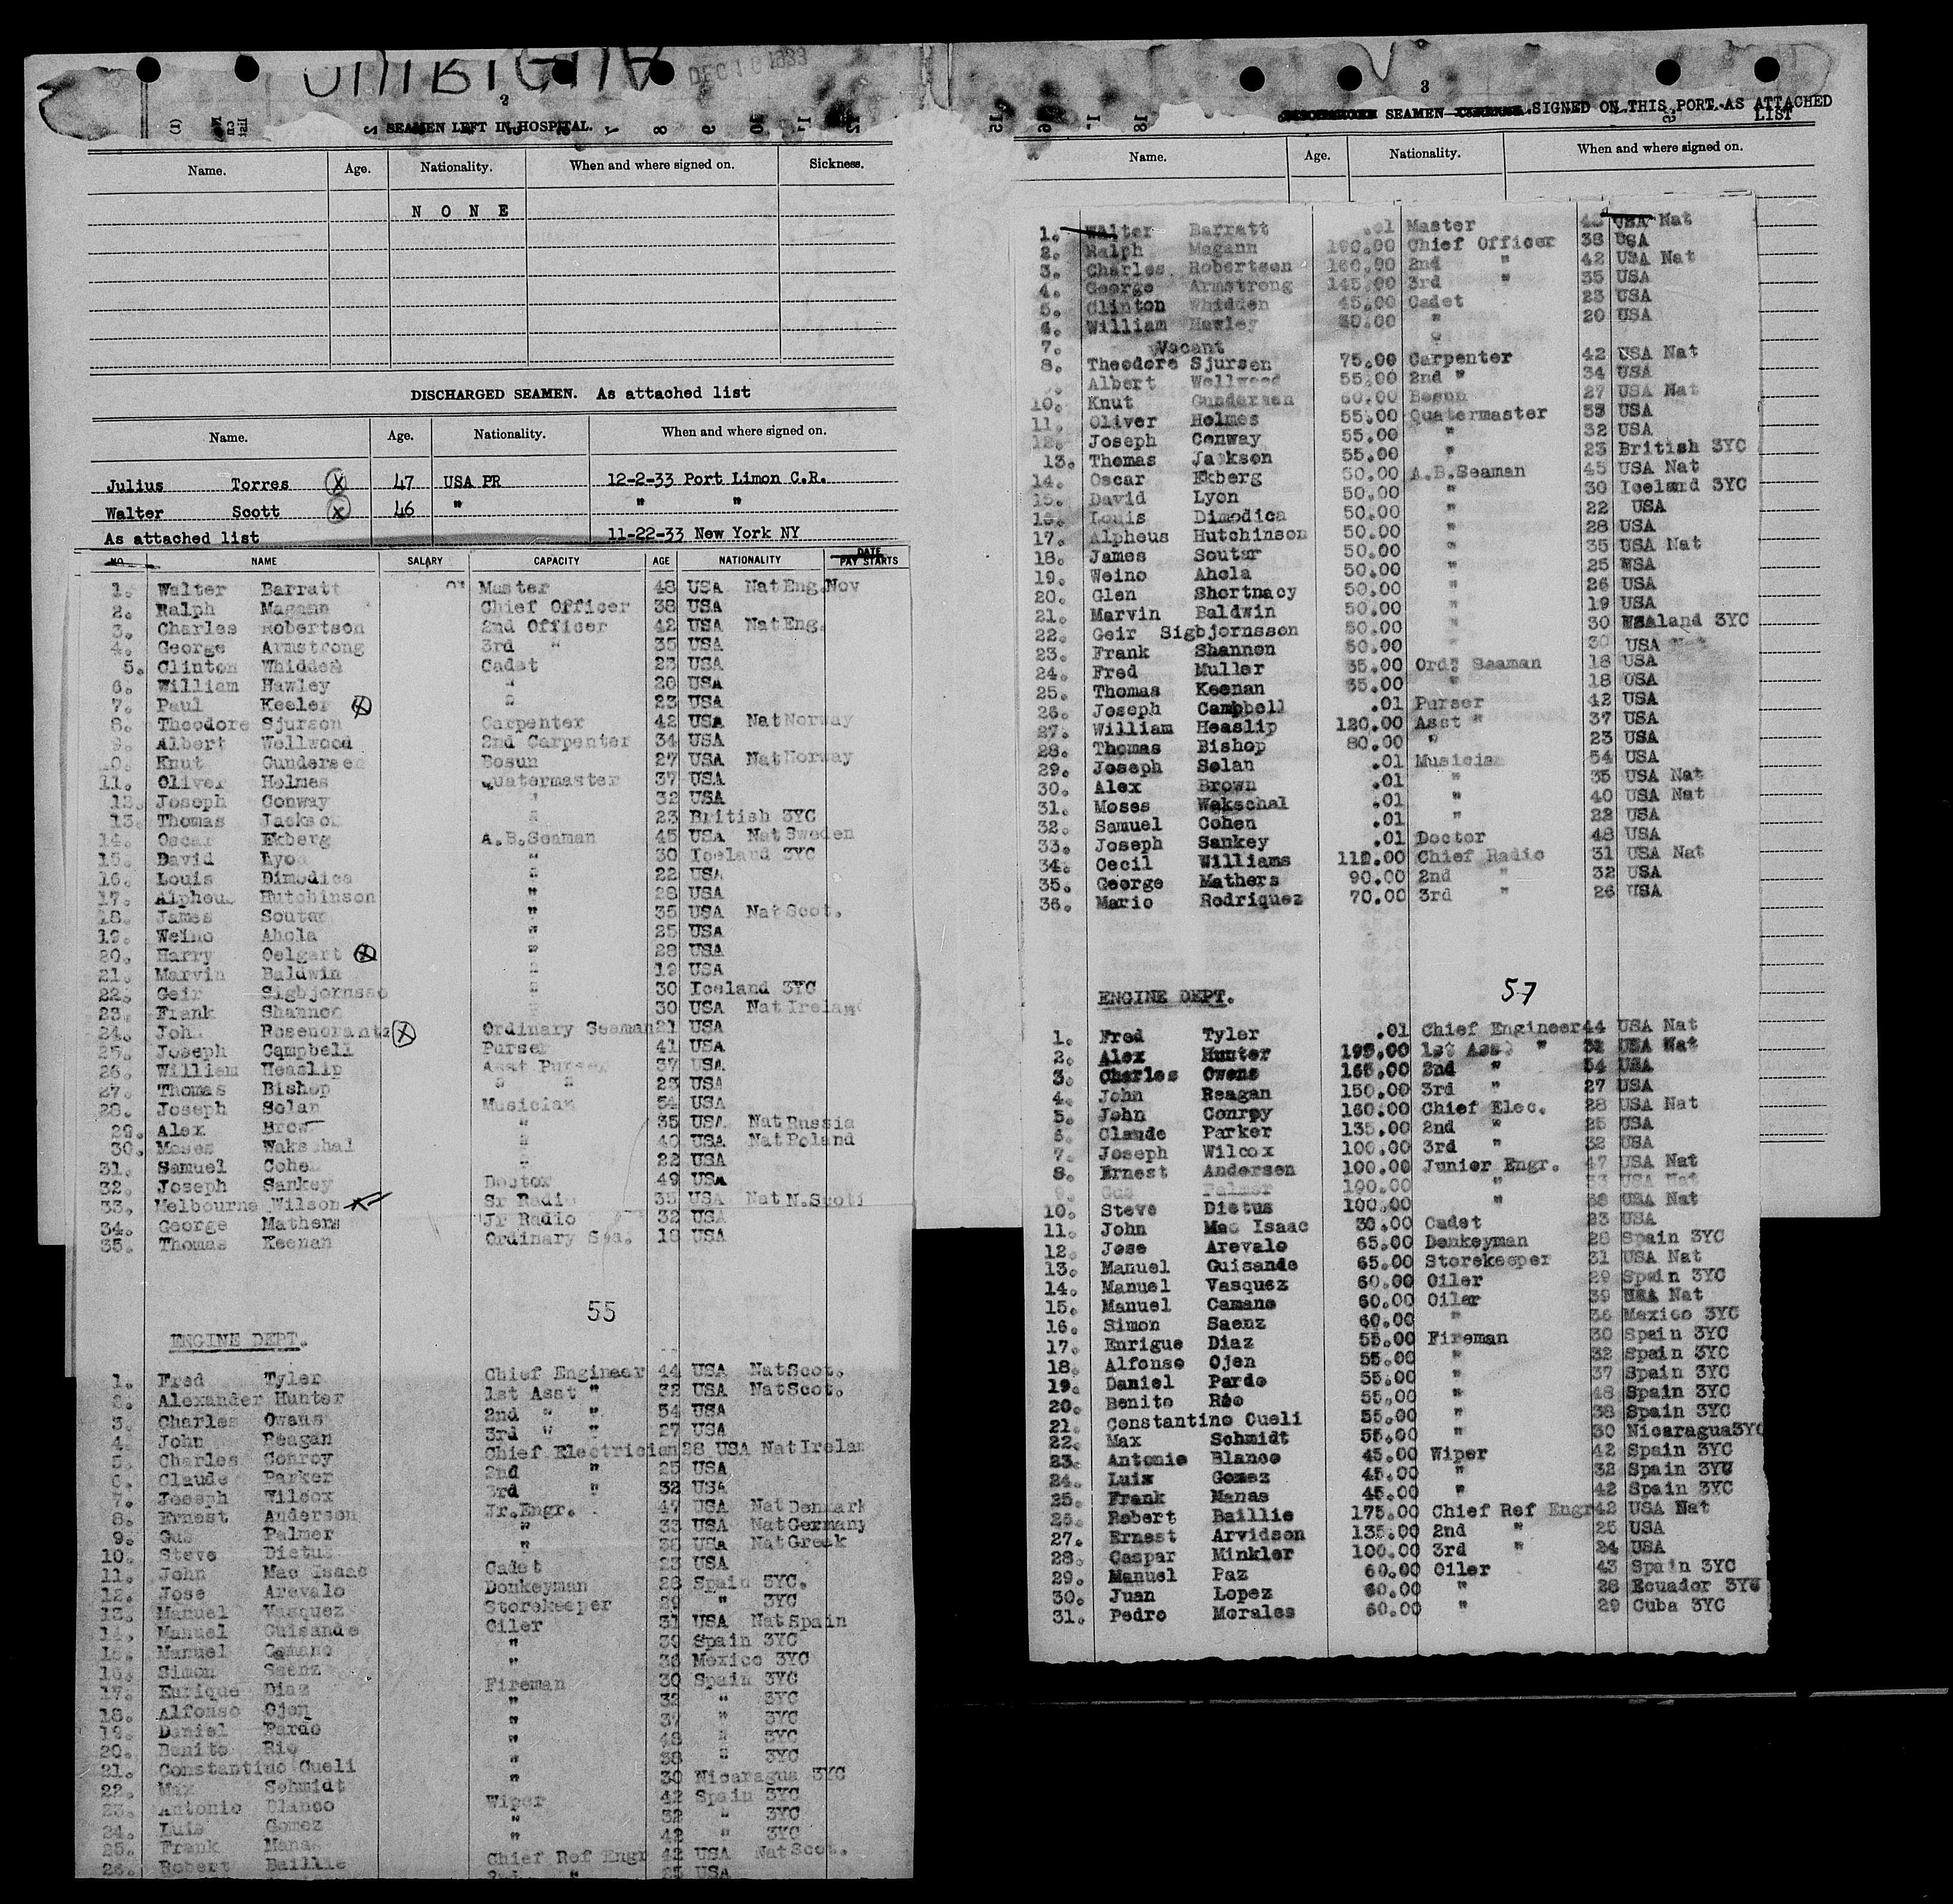 CHIRIQUI DEC 10 1933
2
SEAMEN LEFT IN HOSPITAL.
Name. Age. Nationality. When and where signed on. Sickness.
N O N E
DISCHARGED SEAMEN. As attached list
Name. Age. Nationality. When and where signed on.
Julius Torres X 47 USA PR 12-2-33 Port Limon C.R.
Walter Scott X 46 " " "
As attached list 11-22-33 New York NY
NO. NAME SALARY CAPACITY AGE NATIONALITY DATE PAY STARTS
1. Walter Barratt 01 Master 48 USA Nat Eng. Nov
2. Ralph Magann Chief Officer 38 USA
3. Charles Robertson 2nd Officer 42 USA Nat Eng.
4. George Armstrong 3rd " 35 USA
5. Clinton Whidden Cadet 23 USA
6. William Hawley " 20 USA
7. Paul Keeler X " 23 USA
8. Theodore Sjurson Carpenter 42 USA Nat Norway
9. Albert Wellwood 2nd Carpenter 34 USA
10. Knut Gundersen Bosun 27 USA Nat Norway
11. Oliver Holmes Quatermaster 37 USA
12. Joseph Conway " 32 USA
13. Thomas Jackson " 23 British 3YC
14. Oscar Ekberg A.B.Seaman 45 USA Nat Sweden
15. David Lyon " 30 Iceland 3YC
16. Louis Dimodica " 22 USA
17. Alpheus Hutchinson " 28 USA
18. James Soutar " 35 USA Nat Scot.
19. Weino Ahola " 25 USA
20. Harry Oelgart X " 28 USA
21. Marvin Baldwin " 19 USA
22. Geir Sigbjornsso " 30 Iceland 3YC
23. Frank Shannon " 30 USA Nat Ireland
24. John Rosencrantz X Ordinary Seaman 21 USA
25. Joseph Campbell Purser 41 USA
26. William Heaslip Asst Purser 37 USA
27. Thomas Bishop " " 23 USA
28. Joseph Solan Musician 54 USA
29. Alex Brow " 35 USA Nat Russia
30. Moses Wakschal " 40 USA Nat Poland
31. Samuel Cohen " 22 USA
32. Joseph Sankey Doctor 49 USA
33. Melbourne Wilson X Sr Radio 35 USA Nat N.Scoti
34. George Mathers Jr Radio 32 USA
35. Thomas Keenan Ordinary Sea. 18 USA
55
ENGINE DEPT.
1. Fred Tyler Chief Engineer 44 USA Nat Scot.
2. Alexander Hunter 1st Asst " 32 USA Nat Scot.
3. Charles Owens 2nd " " 54 USA
4. John Reagan 3rd " " 27 USA
5. Charles Conroy Chief Electrician 28 USA Nat Irelan
6. Claude Parker 2nd " 25 USA
7. Joseph Wilcox 3rd " 32 USA
8. Ernest Anderson Jr.Engr. 47 USA Nat Denmark
9. Gus Palmer " 33 USA Nat Germany
10. Steve Dietus " 38 USA Nat Greek
11. John Mac Isaac Cadet 23 USA
12. Jose Arevalo Donkeyman 28 Spain 3YC.
13. Manuel Vasquez Storekeeper 29 " 3YC
14. Manuel Guisande Oiler 31 USA Nat Spain
15. Manuel Camano " 39 Spain 3YC
16. Simon Saenz " 36 Mexico 3YC
17. Enrique Diaz Fireman 30 Spain 3YC
18. Alfonso Ojen " 32 " 3YC
19. Daniel Pardo " 37 " 3YC
20. Benito Rio " 48 " 3YC
21. Constantino Cueli " 38 " 3YC
22. Max Schmidt " 30 Nicaragua 3YC
23. Antonio Blanco Wiper 42 Spain 3YC
24. Luis Gomez " 32 " 3YC
25. Frank Manas " 42 " 3YC
26. Robert Baillie Chief Ref Engr 42 USA Nat Scot.
2nd " 25 USA
3
SEAMEN SIGNED ON THIS PORT. AS ATTACHED LIST
Name. Age. Nationality. When and where signed on.
1. Walter Barratt .01 Master 48 USA Nat
2. Ralph Magann 190.00 Chief Officer 38 USA
3. Charles Robertson 160.00 2nd " 42 USA Nat
4. George Armstrong 145.00 3rd " 35 USA
5. Clinton Whidden 45.00 Cadet 23 USA
6. William Hawley 30.00 " 20 USA
7. Vacant "
8. Theodore Sjursen 75.00 Carpenter 42 USA Nat
Albert Wellwood 55.00 2nd " 34 USA
10. Knut Gundersen 60.00 Bosun 27 USA Nat
11. Oliver Holmes 55.00 Quatermaster 53 USA
12. Joseph Conway 55.00 " 32 USA
13. Thomas Jackson 55.00 " 23 British 3YC
14. Oscar Ekberg 50.00 A.B.Seaman 45 USA Nat
15. David Lyon 50.00 " 30 Iceland 3YC
16. Louis Dimodica 50.00 " 22 USA
17. Alpheus Hutchinson 50.00 " 28 USA
18. James Soutar 50.00 " 35 USA Nat
19. Weino Ahola 50.00 " 25 USA
20. Glen Shortnacy 50.00 " 26 USA
21. Marvin Baldwin 50.00 " 19 USA
22. Geir Sigbjornsson 50.00 " 30 Iceland 3YC
23. Frank Shannon 50.00 " 30 USA Nat
24. Fred Muller 35.00 Ord. Seaman 18 USA
25. Thomas Keenan 35.00 " 18 USA
26. Joseph Campbell .01 Purser 42 USA
27. William Heaslip 120.00 Asst " 37 USA
28. Thomas Bishop 80.00 " 23 USA
29. Joseph Solan .01 Musician 54 USA
30. Alex Brown .01 " 35 USA Nat
31. Moses Wakschal .01 " 40 USA Nat
32. Samuel Cohen .01 " 22 USA
33. Joseph Sankey .01 Doctor 48 USA
34. Cecil Williams 110.00 Chief Radio 31 USA Nat
35. George Mathers 90.00 2nd " 32 USA
36. Mario Rodriquez 70.00 3rd " 26 USA
57
ENGINE DEPT.
1. Fred Tyler .01 Chief Engineer 44 USA Nat
2. Alex Hunter 195.00 1st Ass. " 32 USA Nat
3. Charles Owens 165.00 2nd " 54 USA
4. John Reagan 150.00 3rd " 27 USA
5. John Conroy 160.00 Chief Elec. 28 USA Nat
6. Claude Parker 135.00 2nd " 25 USA
7. Joseph Wilcox 100.00 3rd " 32 USA
8. Ernest Andersen 100.00 Junior Engr. 47 USA Nat
9. Gus Palmer 100.00 " 33 USA Nat
10. Steve Dietus 100.00 " 38 USA Nat
11. John Mac Isaac 30.00 Cadet 23 USA
12. Jose Arevalo 65.00 Donkeyman 28 Spain 3YC
13. Manuel Guisande 65.00 Storekeeper 31 USA Nat
14. Manuel Vasquez 60.00 Oiler 29 Spain 3YC
15. Manuel Camano 60.00 Oiler 39 USA Nat
16. Simon Saenz 60.00 " 36 Mexico 3YC
17. Enrigue Diaz 55.00 Fireman 30 Spain 3YC
18. Alfonso Ojen 55.00 " 32 Spain 3YC
19. Daniel Pardo 55.00 " 37 Spain 3YC
20. Benito Rio 55.00 " 48 Spain 3YC
21. Constantino Cueli 55.00 " 38 Spain 3YC
22. Max Schmidt 55.00 " 30 Nicaragua 3YC
23. Antonio Blanco 45.00 Wiper 42 Spain 3YC
24. Luis Gomez 45.00 " 32 Spain 3YC
25. Frank Manas 45.00 " 42 Spain 3YC
26. Robert Baillie 175.00 Chief Ref Engr 42 USA Nat
27. Ernest Arvidson 135.00 2nd " 25 USA
28. Caspar Minkler 100.00 3rd " 24 USA
29. Manuel Paz 60.00 Oiler 43 Spain 3YC
30. Juan Lopez 60.00 " 28 Ecuador 3YC
31. Pedro Morales 60.00 " 29 Cuba 3YC